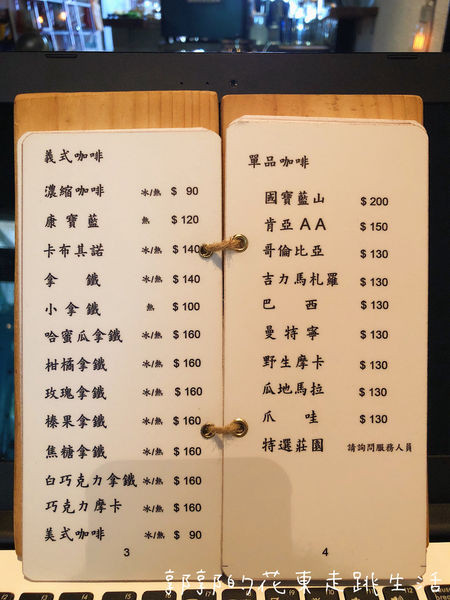 義式咖啡
濃縮咖啡 冰/熱 $ 90
康寶藍 熱 $ 120
卡布其諾 冰/熱 $ 140
拿鐵 冰/熱 $ 140
小拿鐵 熱 $ 100
哈蜜瓜拿鐵 冰/熱 $ 160
柑橘拿鐵 冰/熱 $ 160
玫瑰拿鐵 冰/熱 $ 160
榛果拿鐵 冰/熱 $ 160
焦糖拿鐵 冰/熱 $ 160
白巧克力拿鐵 冰/熱 $ 160
巧克力摩卡 冰/熱 $ 160
美式咖啡 冰/熱 $ 90
3
單品咖啡
國寶藍山 $ 200
肯亞AA $ 150
哥倫比亞 $ 130
吉力馬札羅 $ 130
巴西 $ 130
曼特寧 $ 130
野生摩卡 $ 130
瓜地馬拉 $ 130
爪哇 $ 130
特選莊園 請詢問服務人員
4
郭郭的花東走跳生活